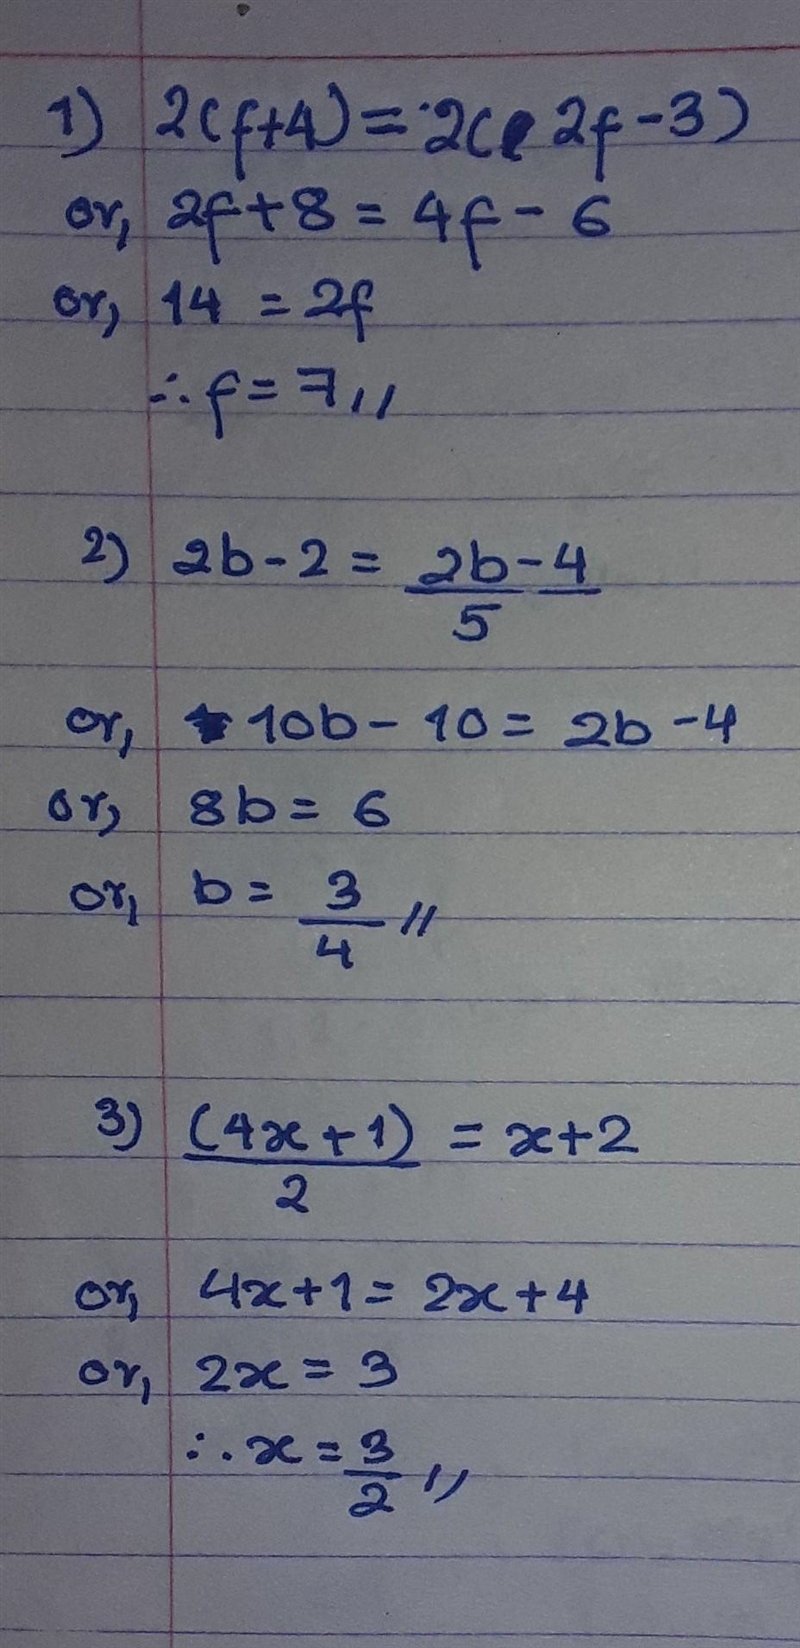 1) 2(f+4) = 2(2f-3)
or, 2f+8 = 4f-6
or, 14 = 2f
∴ f = 7 //
2) 2b-2 = 2b-4
5
or, 10b-10 = 2b-4
or, 8b = 6
or, b = 3
4 //
3) (4x+1) = x+2
2
or, 4x+1 = 2x+4
or, 2x = 3
∴ x = 3
2 //